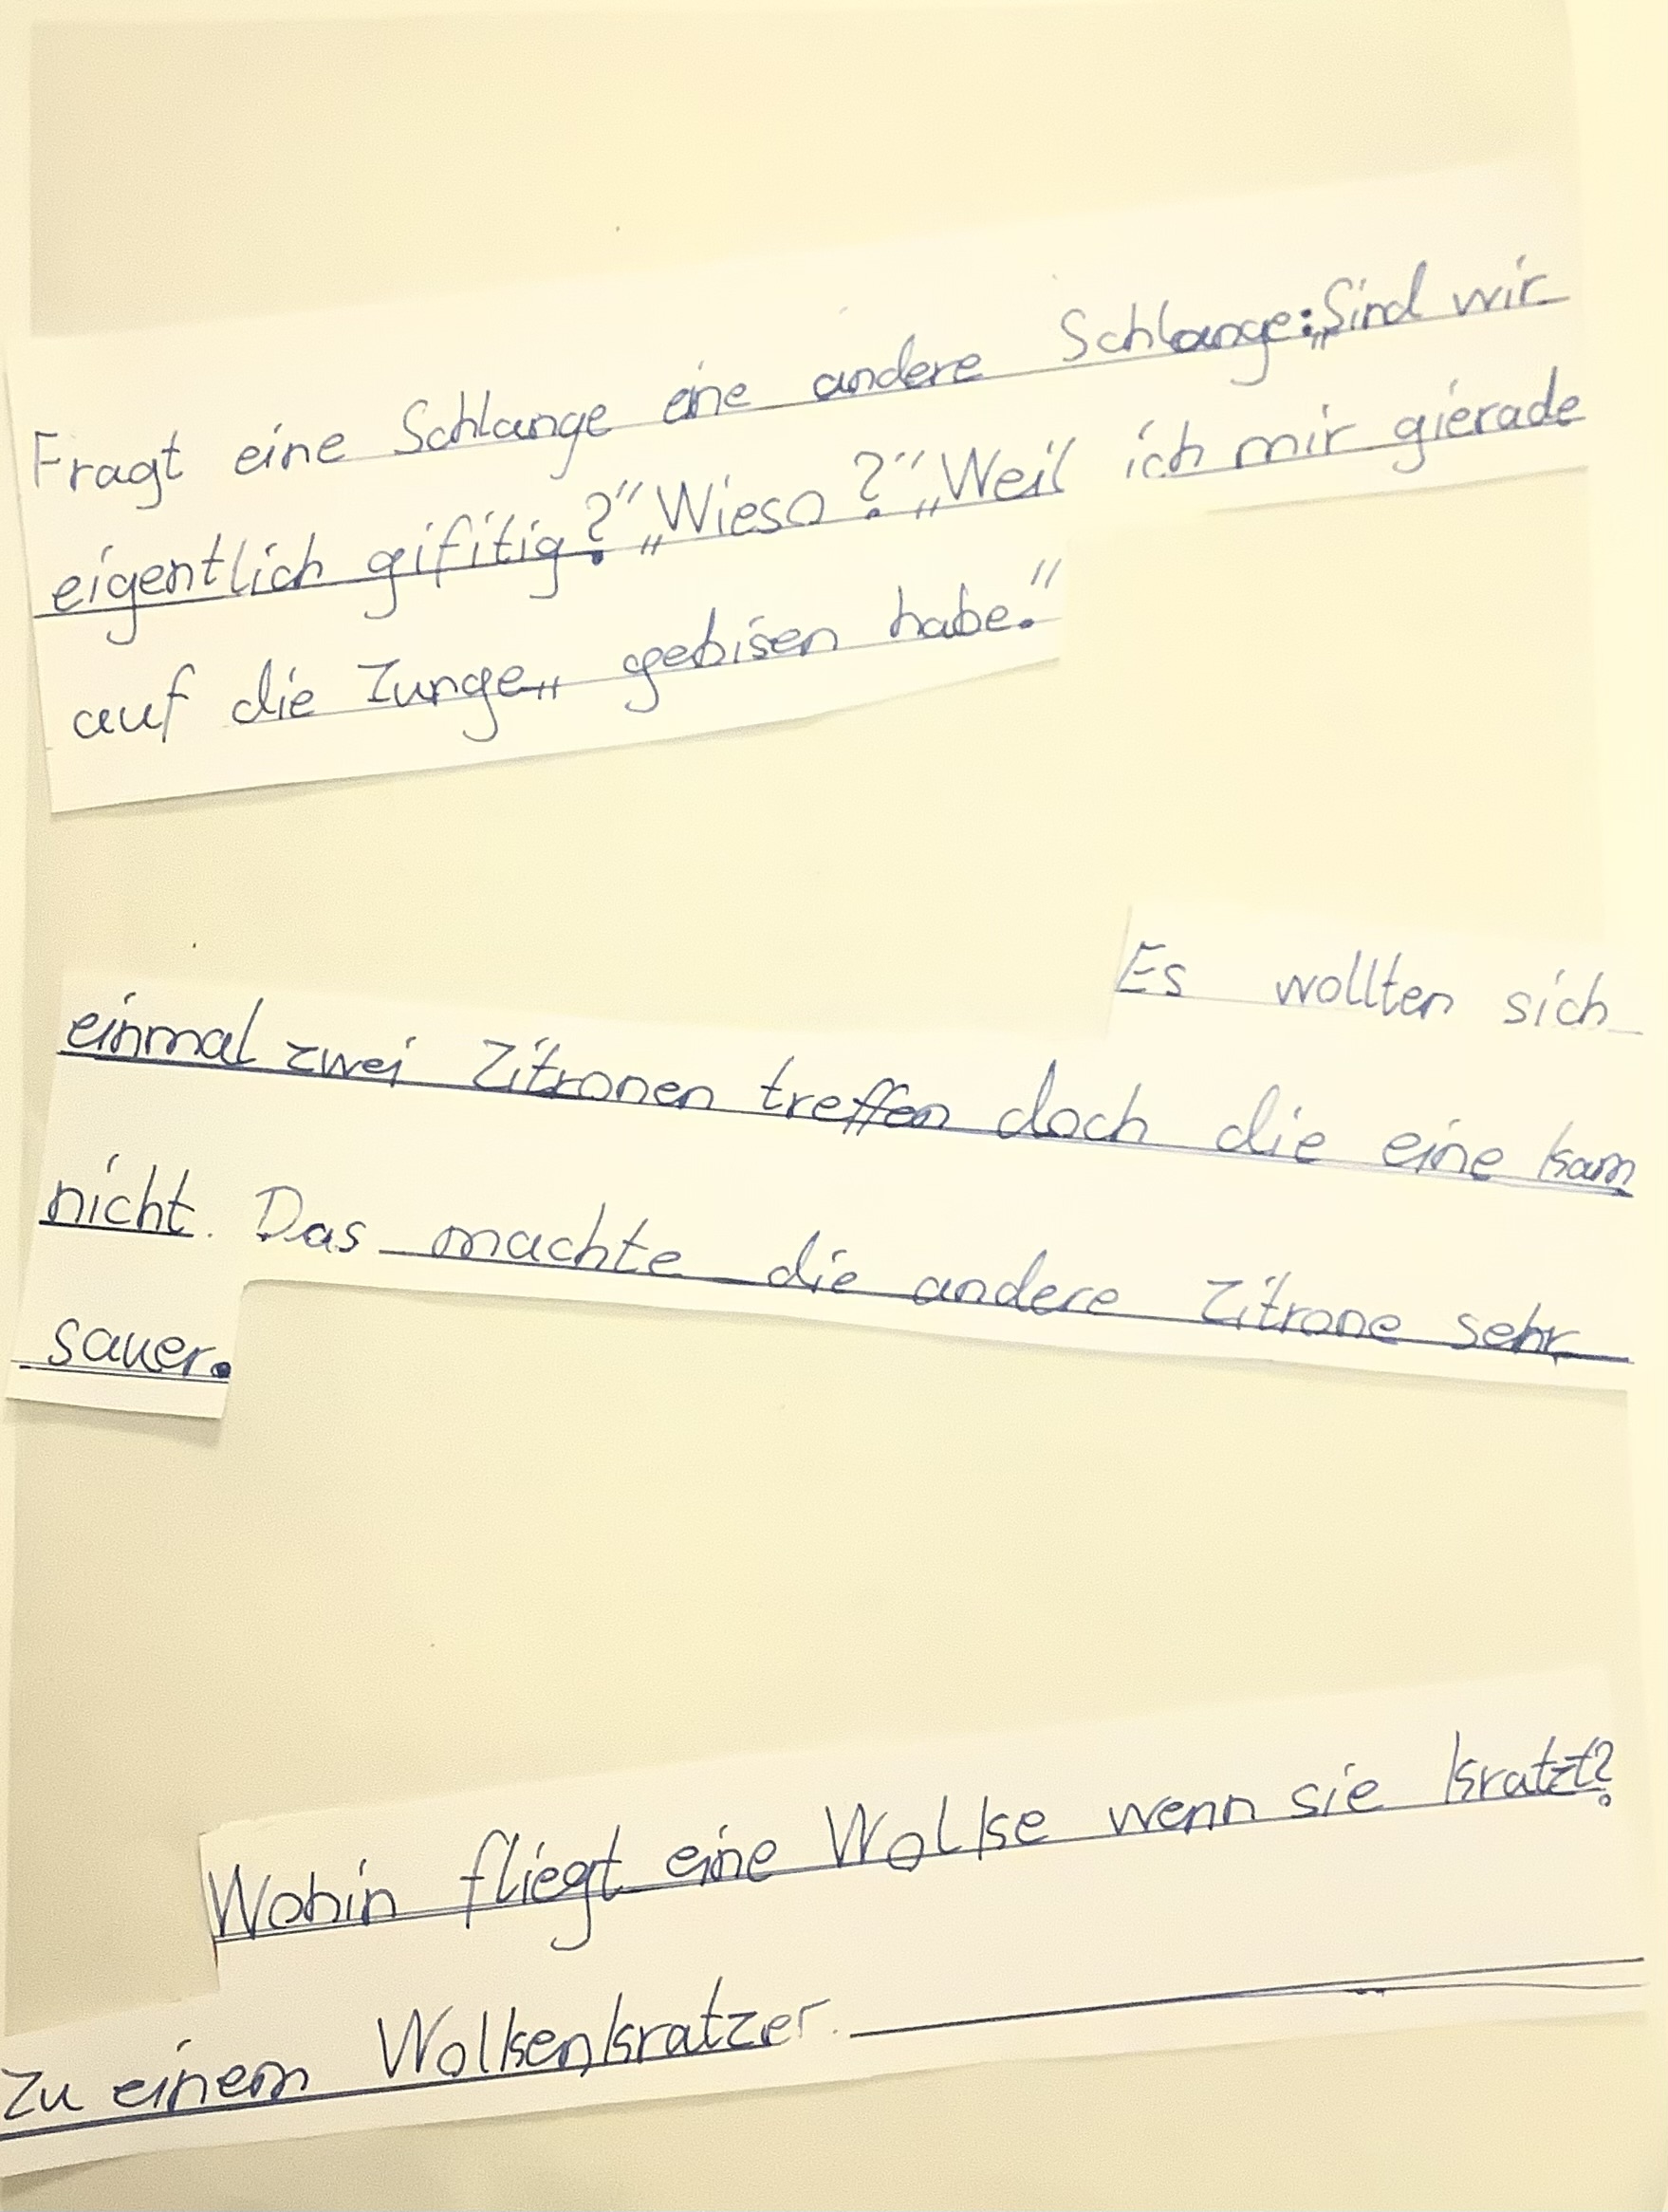 Fragt eine Schlange eine andere Schlange: „Sind wir
eigentlich gifitig?" „Wieso?" „Weil ich mir gierade
auf die Zunge„ gebisen habe."
Es wollten sich
einmal zwei Zitronen treffen doch die eine kam
nicht. Das machte die andere Zitrone sehr
sauer.
Wohin fliegt eine Wolke wenn sie kratzt?
Zu einem Wolkenkratzer.